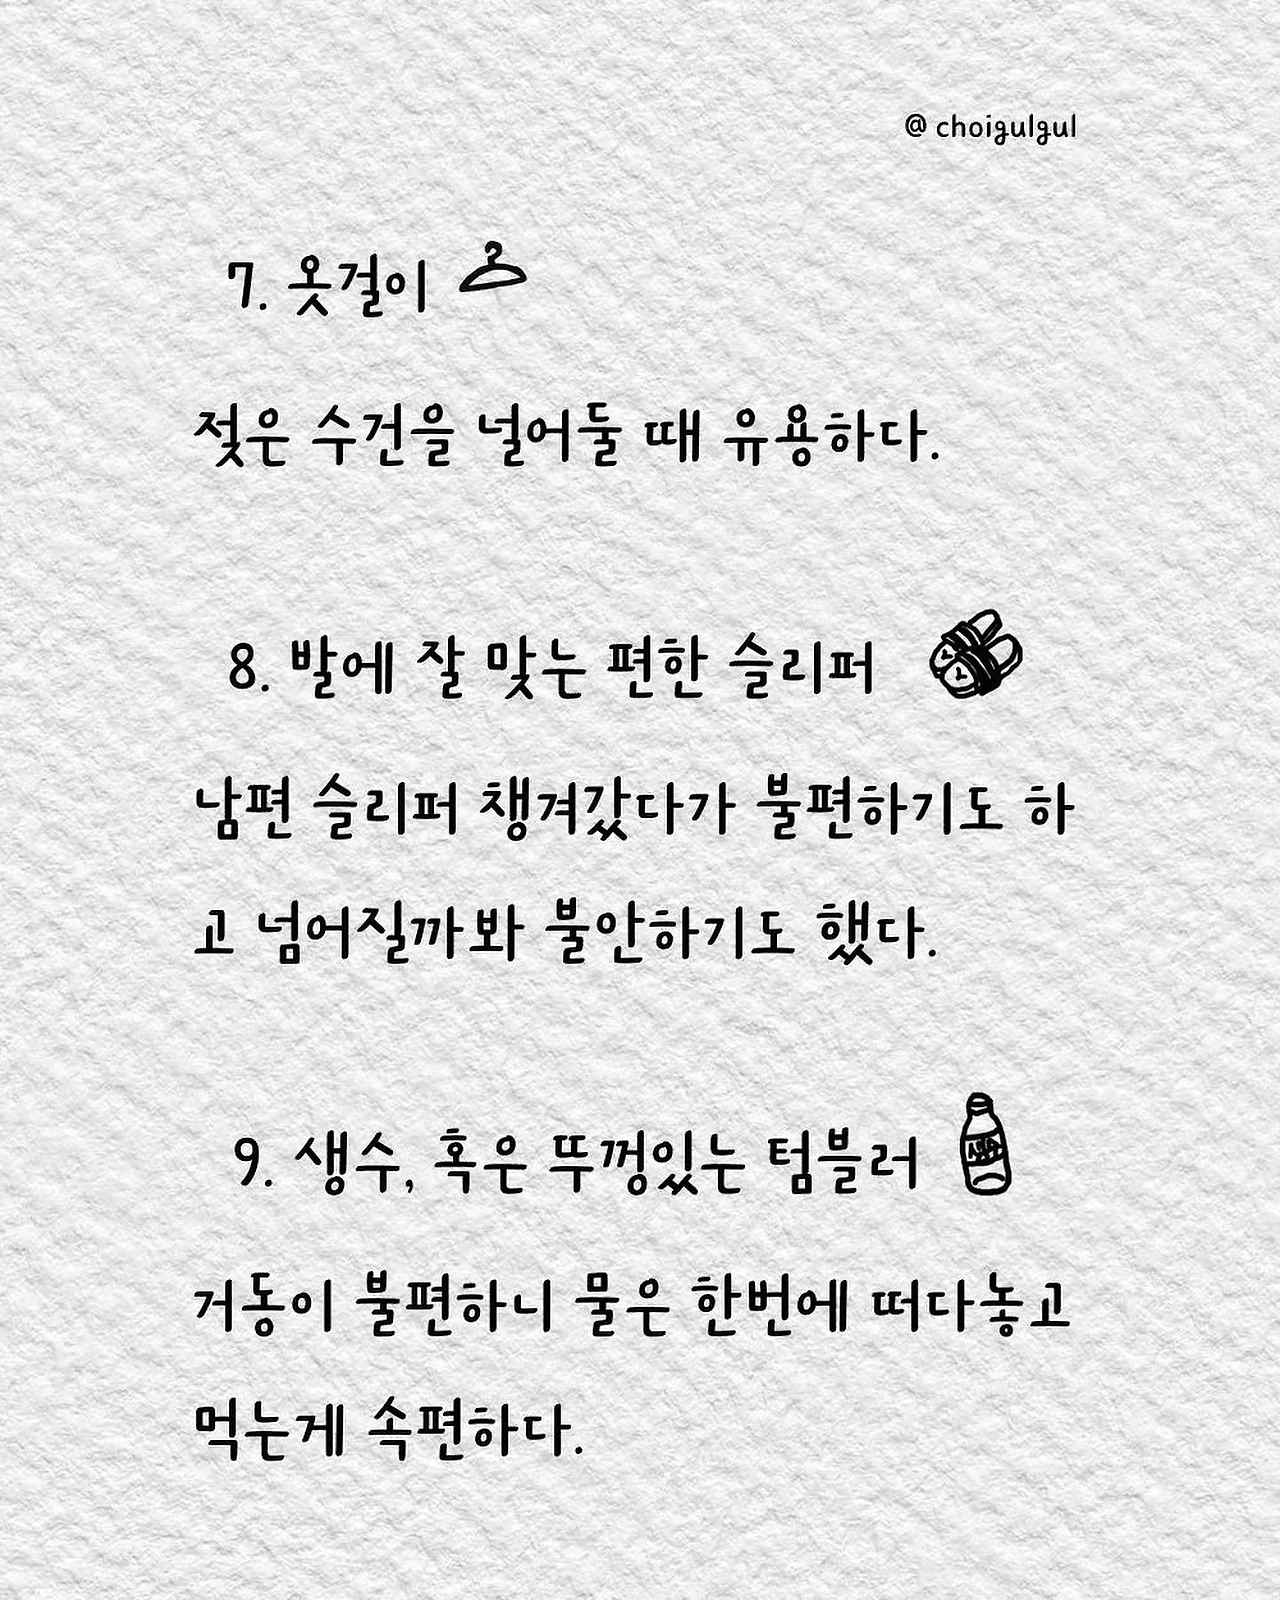 @ choigulgul
7. 옷걸이
젖은 수건을 널어둘 때 유용하다.
8. 발에 잘 맞는 편한 슬리퍼
남편 슬리퍼 챙겨갔다가 불편하기도 하
고 넘어질까봐 불안하기도 했다.
9. 생수, 혹은 뚜껑있는 텀블러
생수
거동이 불편하니 물은 한번에 떠다놓고
먹는게 속편하다.